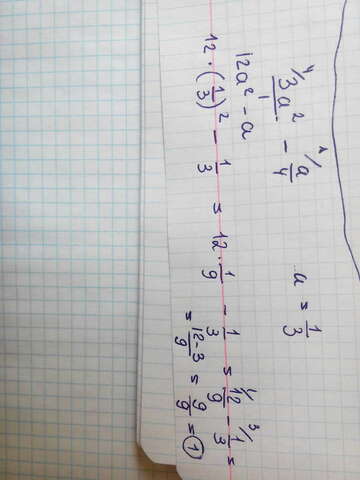 ⁴/3a²/1 - ¹/a/4    a = 1/3
12a² - a
12 · (1/3)² - 1/3 = 12 · 1/9 - 1/3 = ¹/12/9 - ³/1/3 =
= 12-3/9 = 9/9 = 1